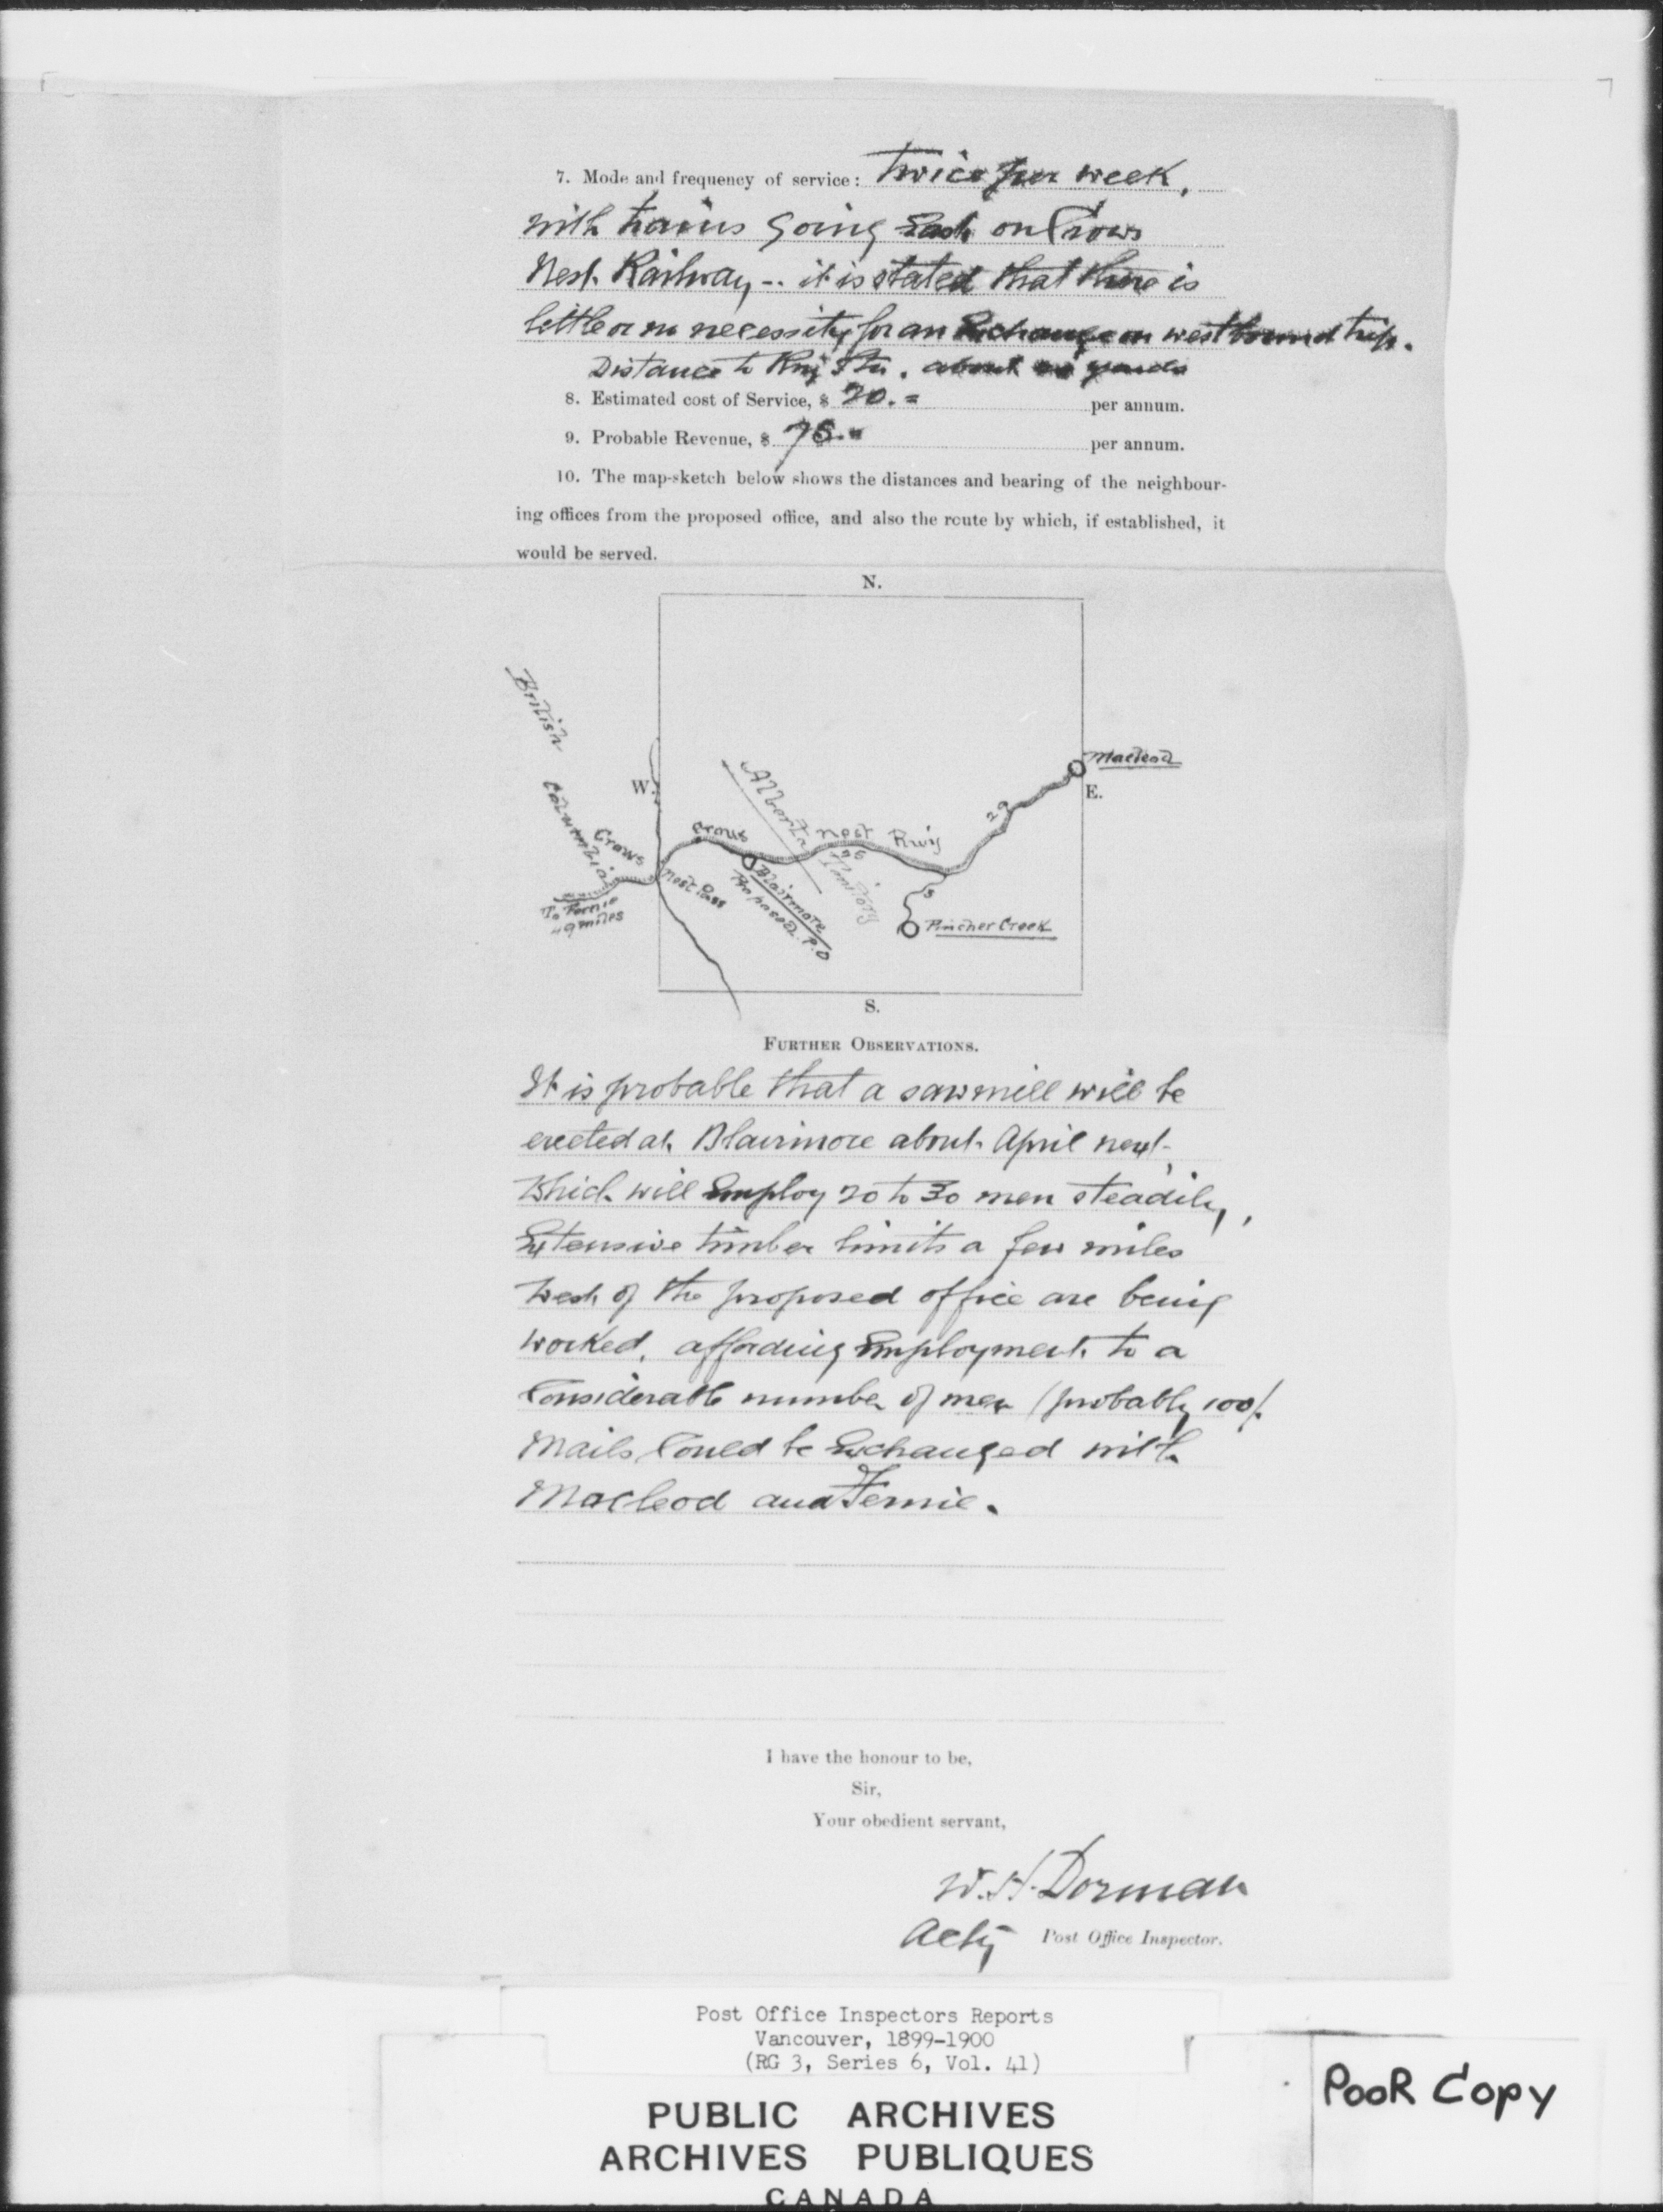 7. Mode and frequency of service: twice per week,
with trains going East on Crows
Nest Railway -- it is stated that there is
little or no necessity for an Exchange on westbound trip.
Distance to Rwy Stn. about yards
8. Estimated cost of Service, $ 20.= per annum.
9. Probable Revenue, $ 75.= per annum.
10. The map-sketch below shows the distances and bearing of the neighbour-
ing offices from the proposed office, and also the route by which, if established, it
would be served.
N.
British
Columbia
W.
Alberta
Territory
Macleod
E.
29
Crows nest Rwy
Crows
nest Pass
To Fernie
49 miles
Blairmore
Proposed P.O
Pincher Creek
S.
FURTHER OBSERVATIONS.
It is probable that a sawmill will be
erected at Blairmore about April next,
which will Employ 20 to 30 men steadily,
Extensive timber limits a few miles
West of the proposed office are being
worked, affording Employment to a
Considerable number of men (probably 100).
Mails Could be Exchanged with
Macleod and Fernie.
I have the honour to be,
Sir,
Your obedient servant,
W. H. Dorman
Actg Post Office Inspector.
Post Office Inspectors Reports
Vancouver, 1899-1900
(RG 3, Series 6, Vol. 41)
PUBLIC ARCHIVES
ARCHIVES PUBLIQUES
CANADA
POOR COPY